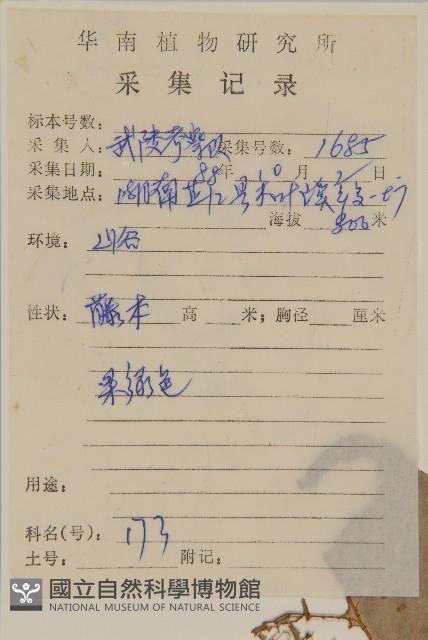 华南植物研究所
采集记录
标本号数：
采集人：武陵考察队 采集号数：1685
采集日期：88年10月2日
采集地点：湖南芷江县木叶溪
海拔 800米
环境：山谷
性状：藤本 高 米；胸径 厘米
果绿色
用途：
科名(号)：173
土号： 附记：
國立自然科學博物館
NATIONAL MUSEUM OF NATURAL SCIENCE